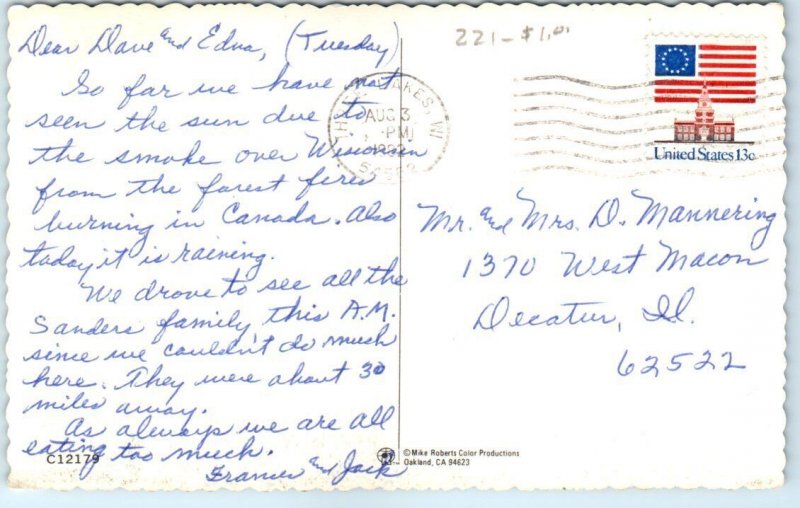 Dear Dave and Edna, (Tuesday)
So far we have not
seen the sun due to
the smoke over Wisconsin
from the forest fires
burning in Canada. Also
today it is raining.
We drove to see all the
Sanders family this A.M.
since we couldn't do much
here. They were about 30
miles away.
As always we are all
eating too much.
Frances and Jack
C12179
221-$1.01
LAKES, WI
AUG 3
PM
United States 13c
Mr. and Mrs. D. Mannering
1370 West Macon
Decatur, Il.
62522
©Mike Roberts Color Productions
Oakland, CA 94623